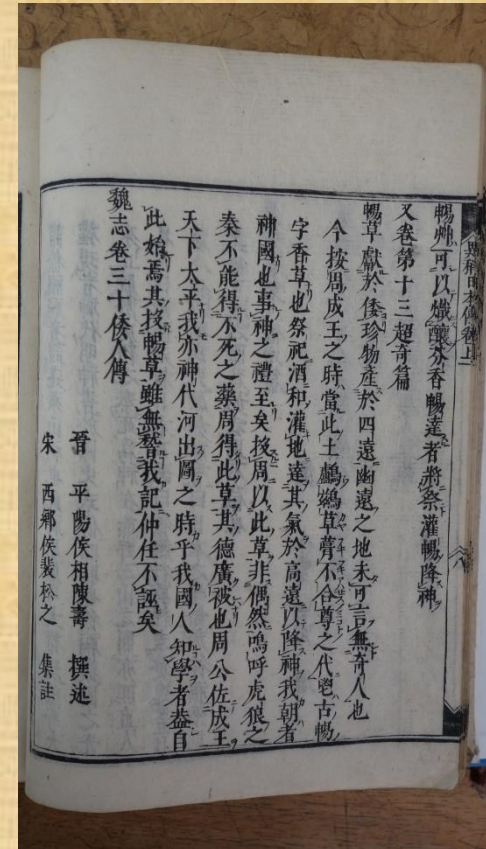 異稱日本傳卷上一
暢艸可以熾釀芬香暢達者將祭灌暢降神
又卷第十三超奇篇
暢草獻於倭珍物產於四遠幽遠之地未可言無奇人也
今按周成王之時當此土鸕鷀草葺不合尊之代鬯古暢
字香草也祭祀酒和灌地達其氣於高遠以降神我朝者
神國也事神之禮至矣授周以此草非偶然嗚呼虎狼之
秦不能得不死之藥周得此草其德廣被也周公佐成王
天下太平我亦神代河出圖之時乎我國人知學者蓋自
此始焉其授暢草雖無我記仲任不誣矣
魏志卷三十倭人傳
晉 平陽侯相陳壽 撰述
宋 西鄉侯裴松之 集註